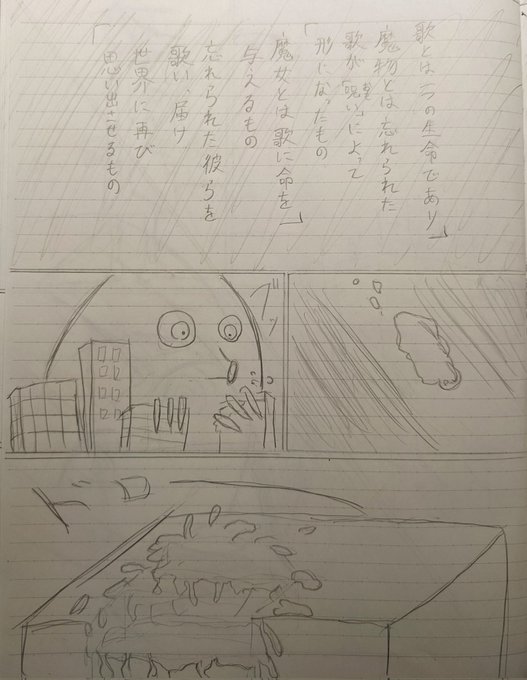 歌とは一つの生命であり」
魔物とは忘れられた
歌が「呪い」によって
「形になったもの
魔女とは歌に命を」
与えるもの
忘れられた彼らを
歌い、届け
世界に再び
「思い出させるもの
ブッ
ドロ